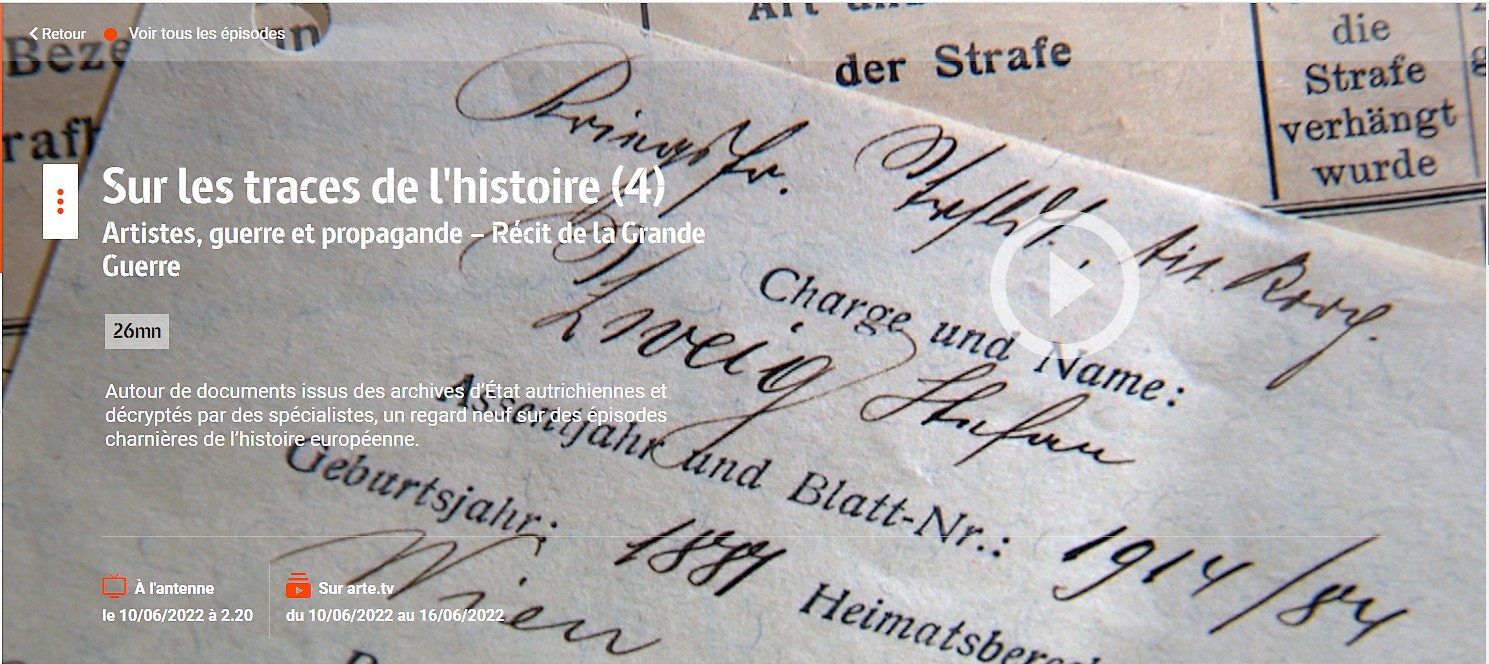 Retour
Voir tous les épisodes
Beze
in
Art un
der Strafe
die
Strafe
verhängt
wurde
rafh
Sur les traces de l'histoire (4)
Artistes, guerre et propagande – Récit de la Grande
Guerre
26mn
Autour de documents issus des archives d'État autrichiennes et
décryptés par des spécialistes, un regard neuf sur des épisodes
charnières de l'histoire européenne.
Charge und Name:
Zweig Stefan
Assentjahr und Blatt-Nr.: 1914/84
Geburtsjahr: 1881
Heimatsberec
Wien
À l'antenne
le 10/06/2022 à 2.20
Sur arte.tv
du 10/06/2022 au 16/06/2022